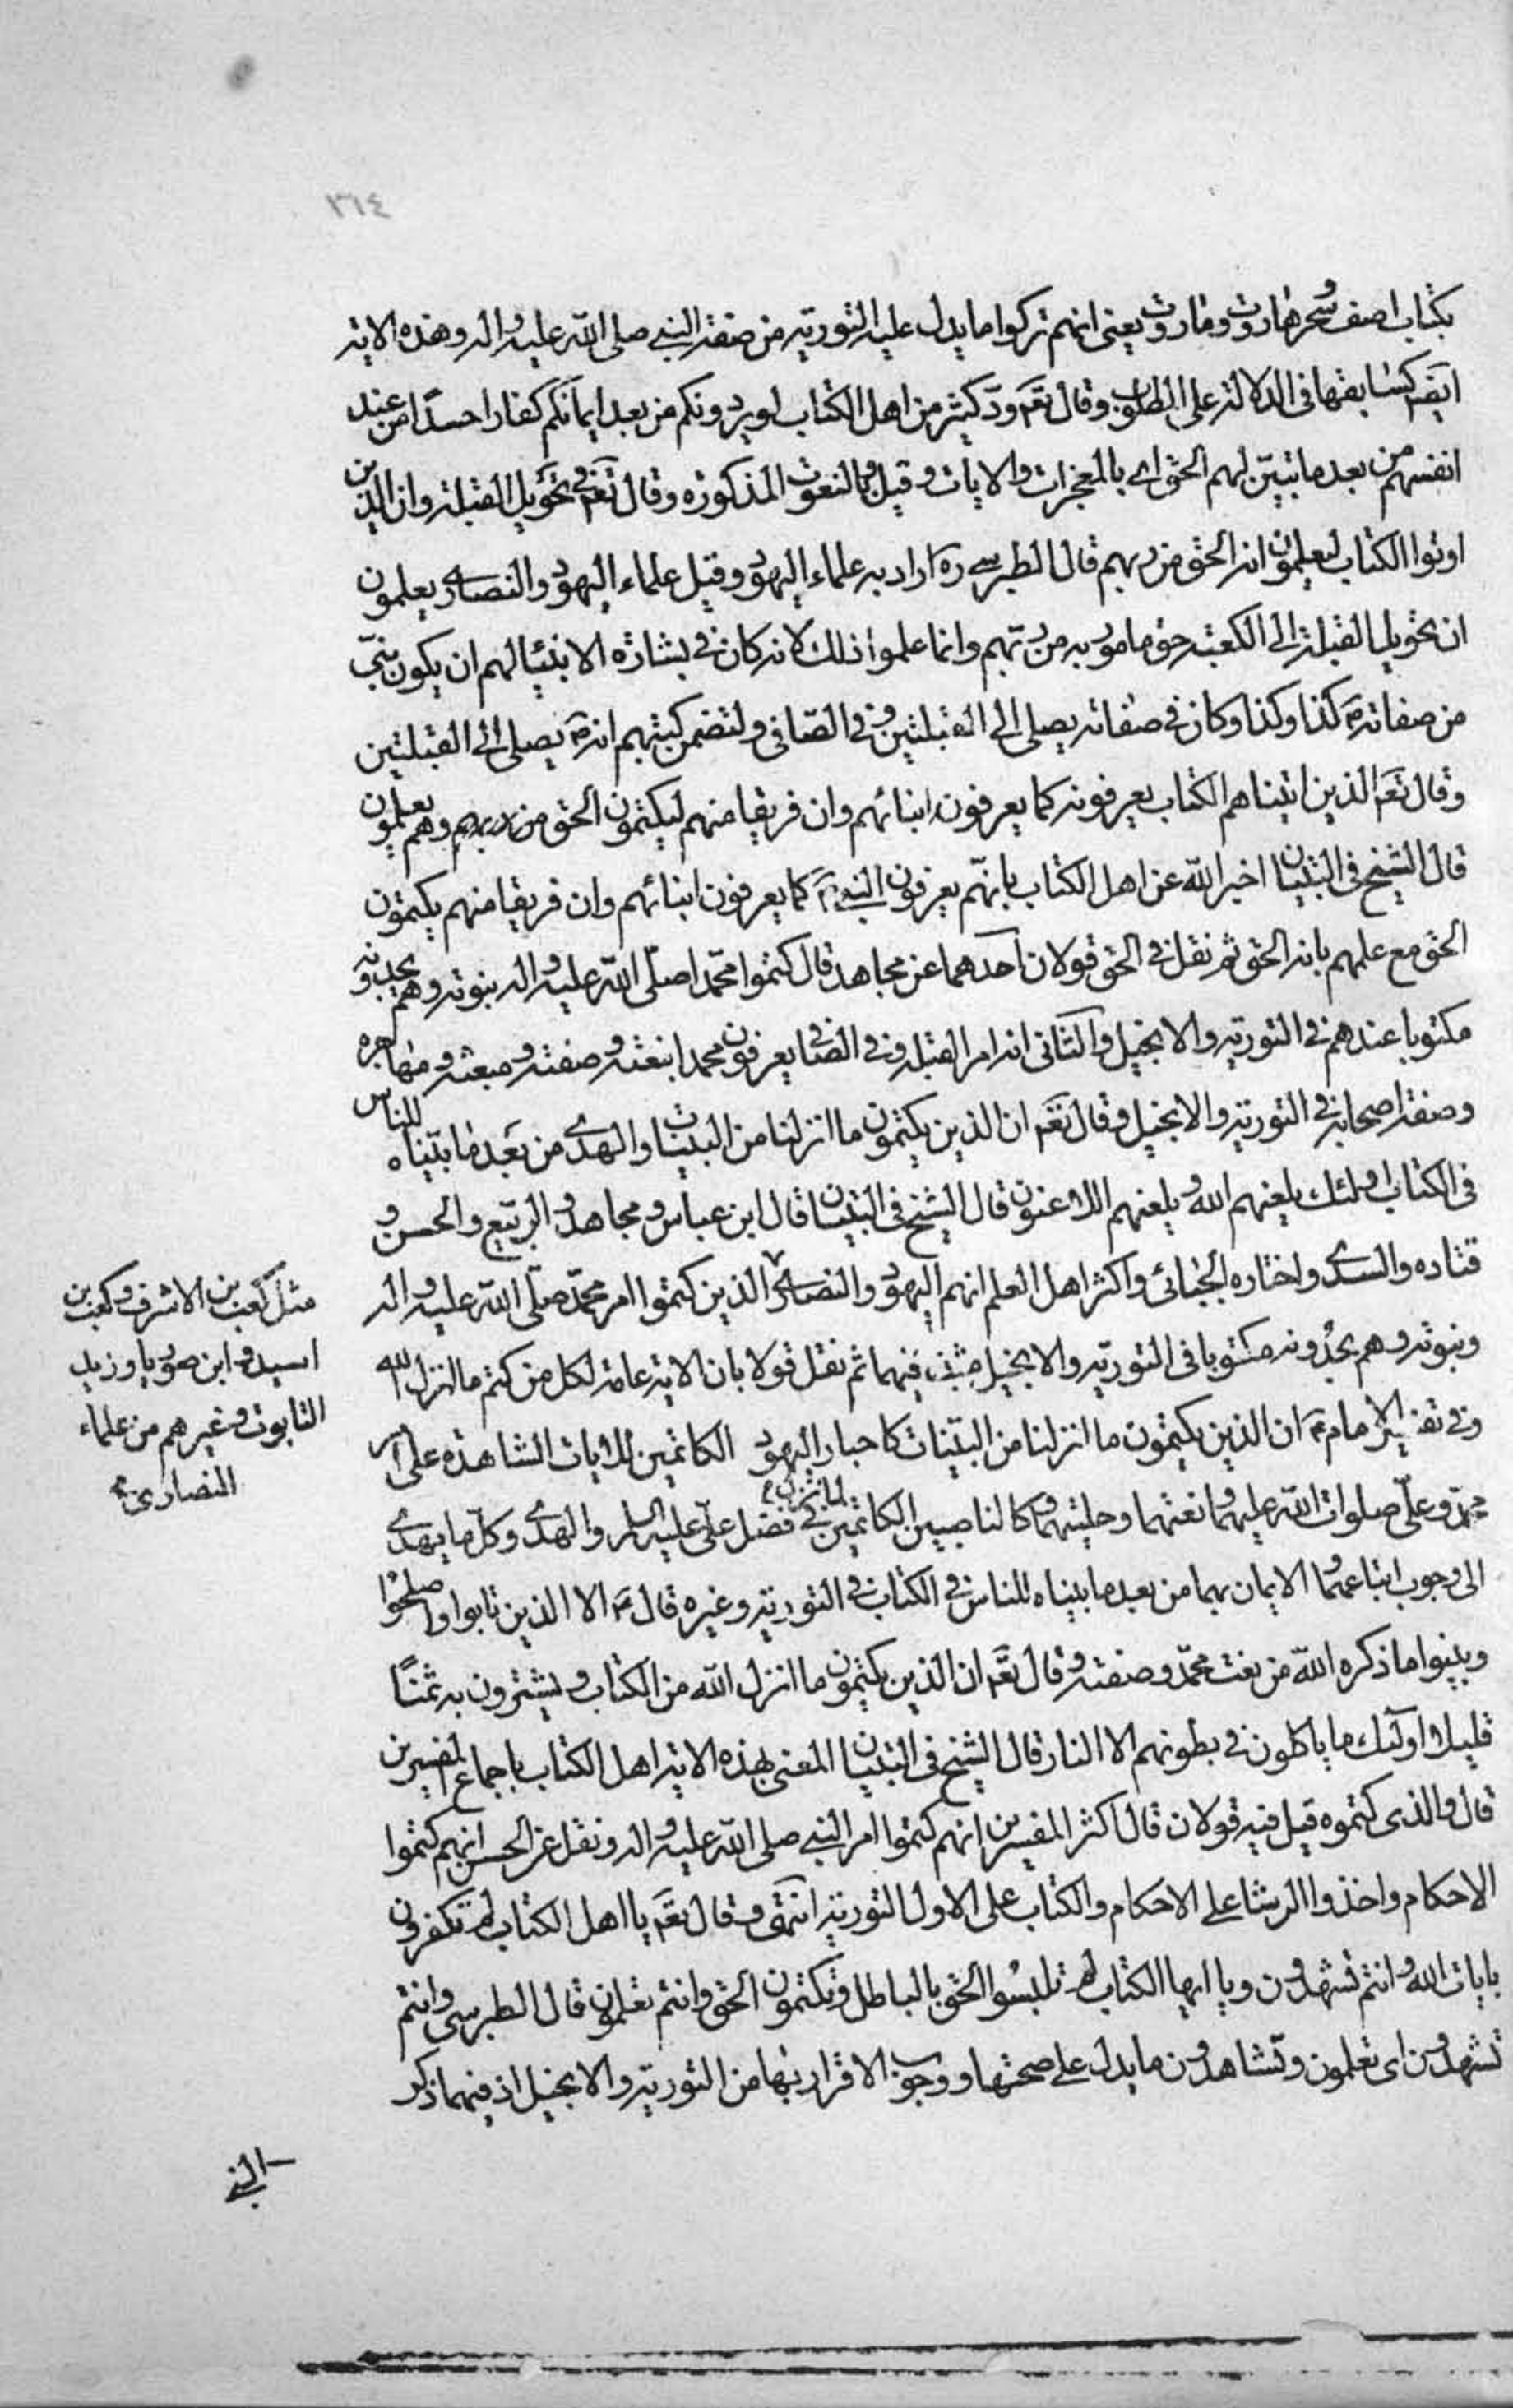 ٣٦٤
بكتاب اصف وسحر هاروت وماروت يعنى انهم تركوا ما يدل عليه التوریة من صفة النبی صلى الله عليه واله وهذه الاية
ايضا كسابقها فى الدلالة على المطلوب وقال تعَ ودّ كثير من اهل الكتاب لو يردونكم من بعد ايمانكم كفارا حسدًا من عند
انفسهم من بعد ما تبيّن لهم الحق اى بالمعجزات والايات وقيل وبالنعوت المذكوره وقال تعَ فى تحويل القبلة وان الذين
اوتوا الكتاب ليعلمون انه الحق من ربهم قال الطبرسى ره اراد به علماء اليهود وقيل علماء اليهود والنصارى يعلمون
ان تحويل القبلة الى الكعبة حق مامور به من ربّهم وانما علموا ذلك لانه كان فى بشارة الانبيا لهم ان يكون نبىّ
من صفاته كذا وكذا وكان فى صفاته يصلى الى القبلتين وفى الصّافى ولتضمن كتبهم انه يصلى الى القبلتين
وقال تعَ الذين اتيناهم الكتاب يعرفونه كما يعرفون ابنائهم وان فريقا منهم ليكتمون الحق من ربهم وهم يعلمون
قال الشيخ فى التبيان اخبر الله عن اهل الكتاب بانهّم يعرفون النبى كما يعرفون ابنائهم وان فريقا منهم يكتمون
الحق مع علمهم بانه الحق ثم نقل فى الحق قولان احدهما عن مجاهد قال كتموا محمّدا صلّى الله عليه واله بنبوته وهم يجدونه
مكتوبا عندهم فى التورية والانجيل والثانى انه امر القبلة وفى الصافى يعرفون محمدا بنعته وصفته ومبعثه ومهاجره
وصفة اصحابه فى التورية والانجيل وقال تعَ ان الذين يكتمون ما انزلنا من البينات والهدى من بعد ما بيّناه للناس
فى الكتاب اولئك يلعنهم الله ويلعنهم اللاعنون قال الشيخ فى التبيان قال ابن عباس ومجاهد والربيع والحسن و
قتاده والسدى واختاره الجبائى واكثر اهل العلم انهم اليهود والنصارى الذين كتموا امر محمّد صلّى الله عليه واله
مثل كعب بن الاشرف وكعب بن
اسيد وابن صوريا وزيد
التابوت وغيرهم من علماء
النصارى
ونبوته وهم يجدونه مكتوبا فى التوريّة والانجيل مثبتة فيهما ثم نقل قولا بان الاية عامة لكل من كتم ما انزل الله
وفى تفسير الامام ان الذين يكتمون ما انزلنا من البيّنات كاحبار اليهود الكاتمين للايات الشاهده على امر
محمّد وعلّى صلوات الله عليهما ونعتهما وحليتهما وكالناصبين الكاتمين لما نزل فى فضل علّى عليه السلم والهدى وكلّ ما يهدى
الى وجوب اتباعهما والايمان بهما من بعد ما بيناه للناس فى الكتاب فى التورية وغيره قال الا الذين تابوا واصلحوا
وبينوا ما ذكره الله من نعت محمّد وصفته وقال تعَ ان الذين يكتمون ما انزل الله من الكتاب ويشترون به ثمنًا
قليلا اولئك ما ياكلون فى بطونهم الا النار قال الشيخ فى التبيان المعنى بهذه الاية اهل الكتاب باجماع المفسرين
قال والذى كتموه قيل فيه قولان قال اكثر المفسرين انهم كتموا امر النبى صلى الله عليه واله ونقل عن الحسن انهم كتموا
الاحكام واخذوا الرشا على الاحكام والكتاب على الاول التورية انتهى وقال تعَ يا اهل الكتاب لم تكفرون
بايات الله وانتم تشهدون ويا ايها الكتاب لم تلبسُوا الحق بالباطل وتكتمون الحق وانتم تعلمون قال الطبرسى وانتم
تشهدون اى تعلمون وتشاهدون ما يدل على صحتها ووجوب الاقرار بها من التورية والانجيل اذ فيهما ذكر
النبى